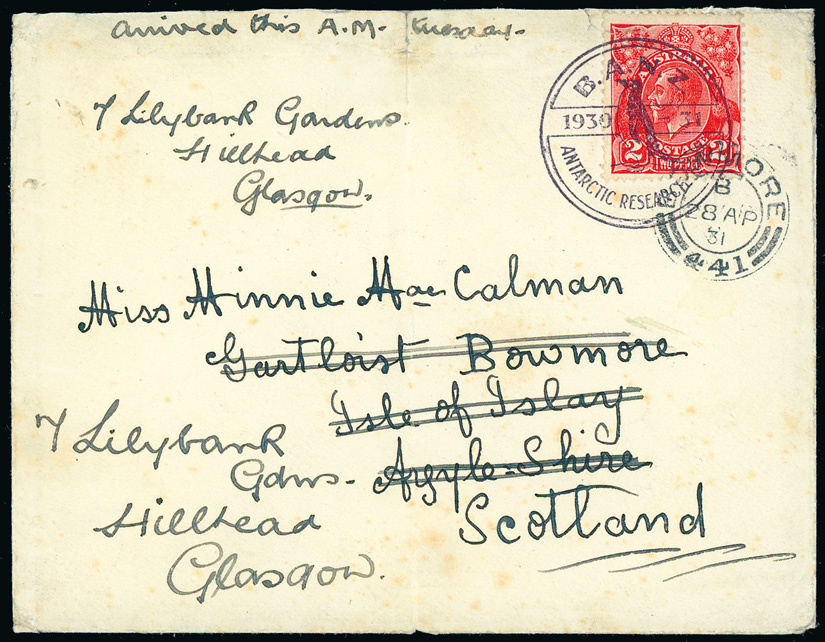 arrived this A.M. Tuesday.
7 Lilybank Gardens
Hillhead
Glasgow.
B.A.N.Z.
1930 31
ANTARCTIC RESEARCH
AUSTRALIA
2 2
POSTAGE
TWO PENCE
BOWMORE
B
28 AP
31
441
Miss Minnie MacCalman
Gartloist Bowmore
Isle of Islay
Argyle-Shire
Scotland
7 Lilybank
Gdns.
Hillhead
Glasgow.